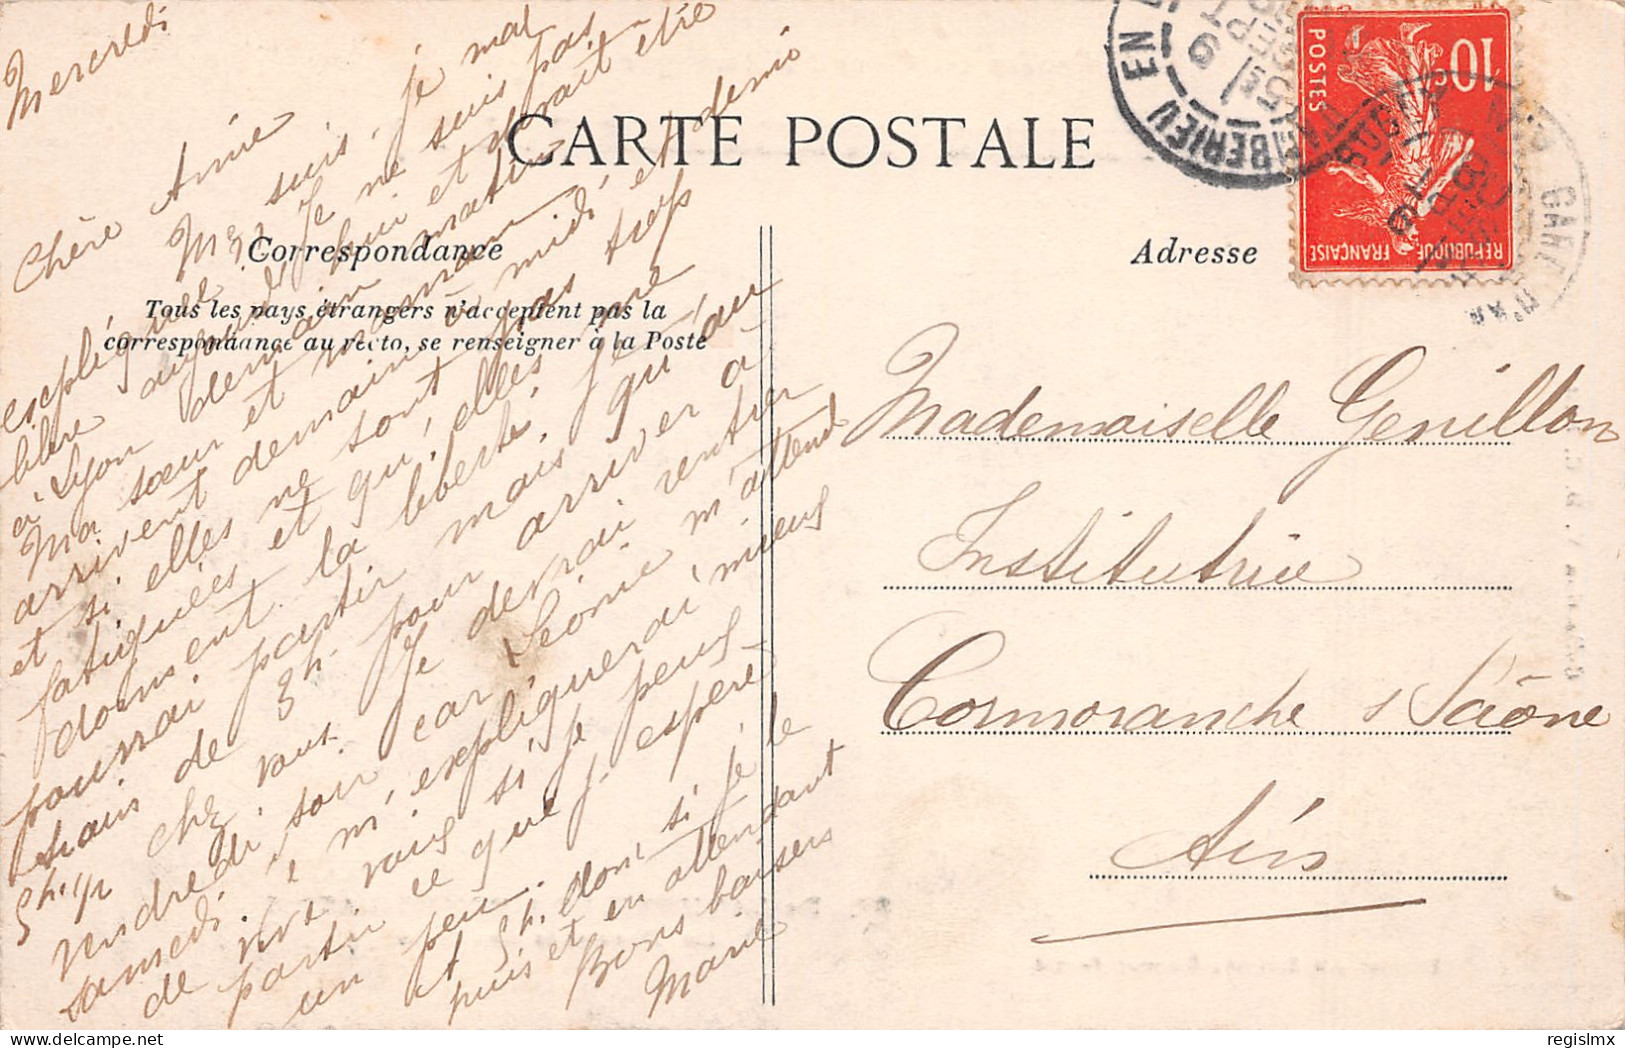 Mercredi
Chère Amie
Je me suis mal
expliquée. Je ne suis pas
libre aujourd'hui et devrait être
à Lyon demain matin
Ma sœur et maman
arrivent demain à midi et demi
et si elles ne sont pas trop
fatiguées et qu'elles me
donnent la liberté, je
pourrai partir mais qu'au
train de 3h. pour arriver à
5h. ½ chez vous. Je devrai rentrer
vendredi soir car Léonie m'attend
samedi. Je m'expliquerai mieux
de vive voix si je peux
partir ce que j'espère
un peu.
et 5h. donc si je le
puis et en attendant
Bons baisers
Marie
CARTE POSTALE
Correspondance
Tous les pays étrangers n'acceptent pas la
correspondance au recto, se renseigner à la Poste
Adresse
Mademoiselle Genillon
Institutrice
Cormoranche s/Saône
Ain
10c
POSTES
REPUBLIQUE FRANÇAISE
AMBERIEU EN BUGEY
GARE
regislmx